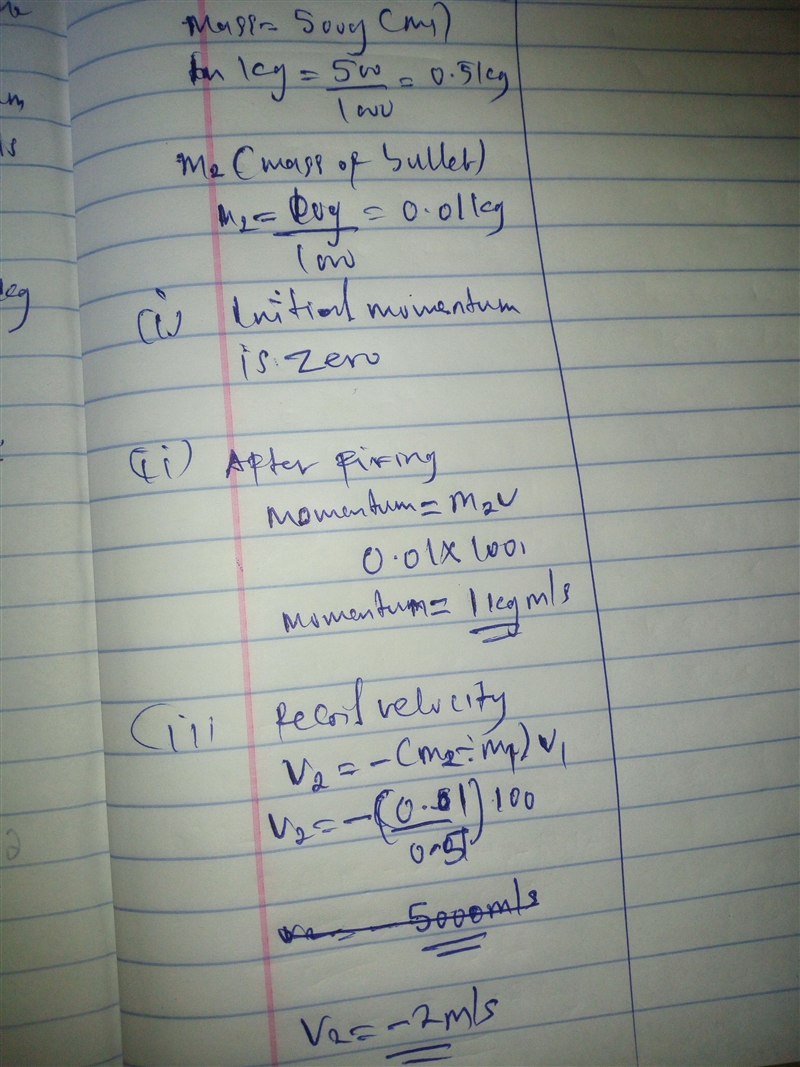 Mass = 500g (m1)
In 1kg = 500/1000 = 0.5kg
m2 (mass of bullet)
m2 = 10g/1000 = 0.01kg
(i) Initial momentum
is zero
(ii) After firing
momentum = m2v
0.01 x 100
momentum = 1kgm/s
(iii Recoil velocity
V2 = -(m2 ÷ m1) V1
V2 = -(0.01/0.5) 100
5000m/s
V2 = -2m/s